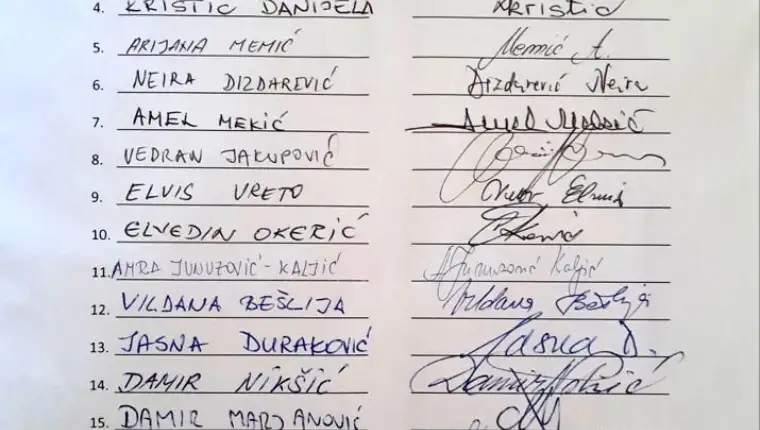 4. KRISTIĆ DANIJELA Kristić
5. ARIJANA MEMIĆ Memić A.
6. NEIRA DIZDAREVIĆ Dizdarević Neira
7. AMEL MEKIĆ Amel Mekić
8. VEDRAN JAKUPOVIĆ
9. ELVIS VRETO Elvis
10. ELVEDIN OKERIĆ
11. AMRA JUNUZOVIĆ-KALJIĆ AJunuzović Kaljić
12. VILDANA BEŠLIJA Vildana Bešlija
13. JASNA DURAKOVIĆ Jasna D.
14. DAMIR NIKŠIĆ Damir Nikšić
15. DAMIR MARJANOVIĆ